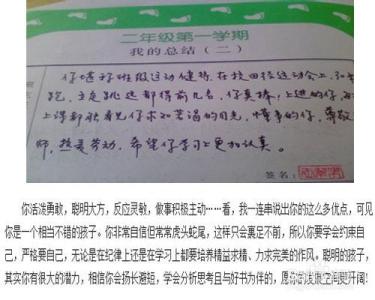 二年级第一学期
我的总结（二）
你堪称班级运动健将，在校田径运动会上，30米
跑、立定跳远都得前几名，你真棒！上进的你，每
上课都能看见你求知若渴的目光，懂事的你，尊敬
师，热爱劳动，希望你学习上更加认真。
签名：
你活泼勇敢，聪明大方，反应灵敏，做事积极主动……看，我一连串说出你的这么多优点，可见
你是一个相当不错的孩子。你非常自信但常常虎头蛇尾，这样只会裹足不前，所以你要学会约束自
己，严格要自己，无论是在纪律上还是在学习上都要培养精益求精、力求完美的作风。聪明的孩子，
其实你有很大的潜力，相信你会扬长避短，学会分析思考且与好书为伴的，愿你的发展空间更开阔！